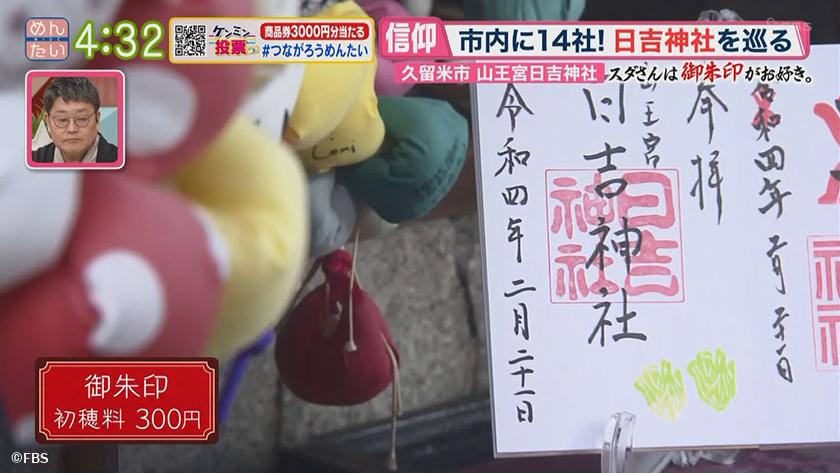 めん
WIDE
たい
4:32
ケンミン
投票
商品券3000円分当たる
#つながろうめんたい
信仰
市内に14社!日吉神社を巡る
久留米市 山王宮日吉神社
スダさんは御朱印がお好き。
奉拝
山王宮
日吉神社
令和四年 二月二十一日
日吉
神社
令和四年
御朱印
初穂料 300円
©FBS